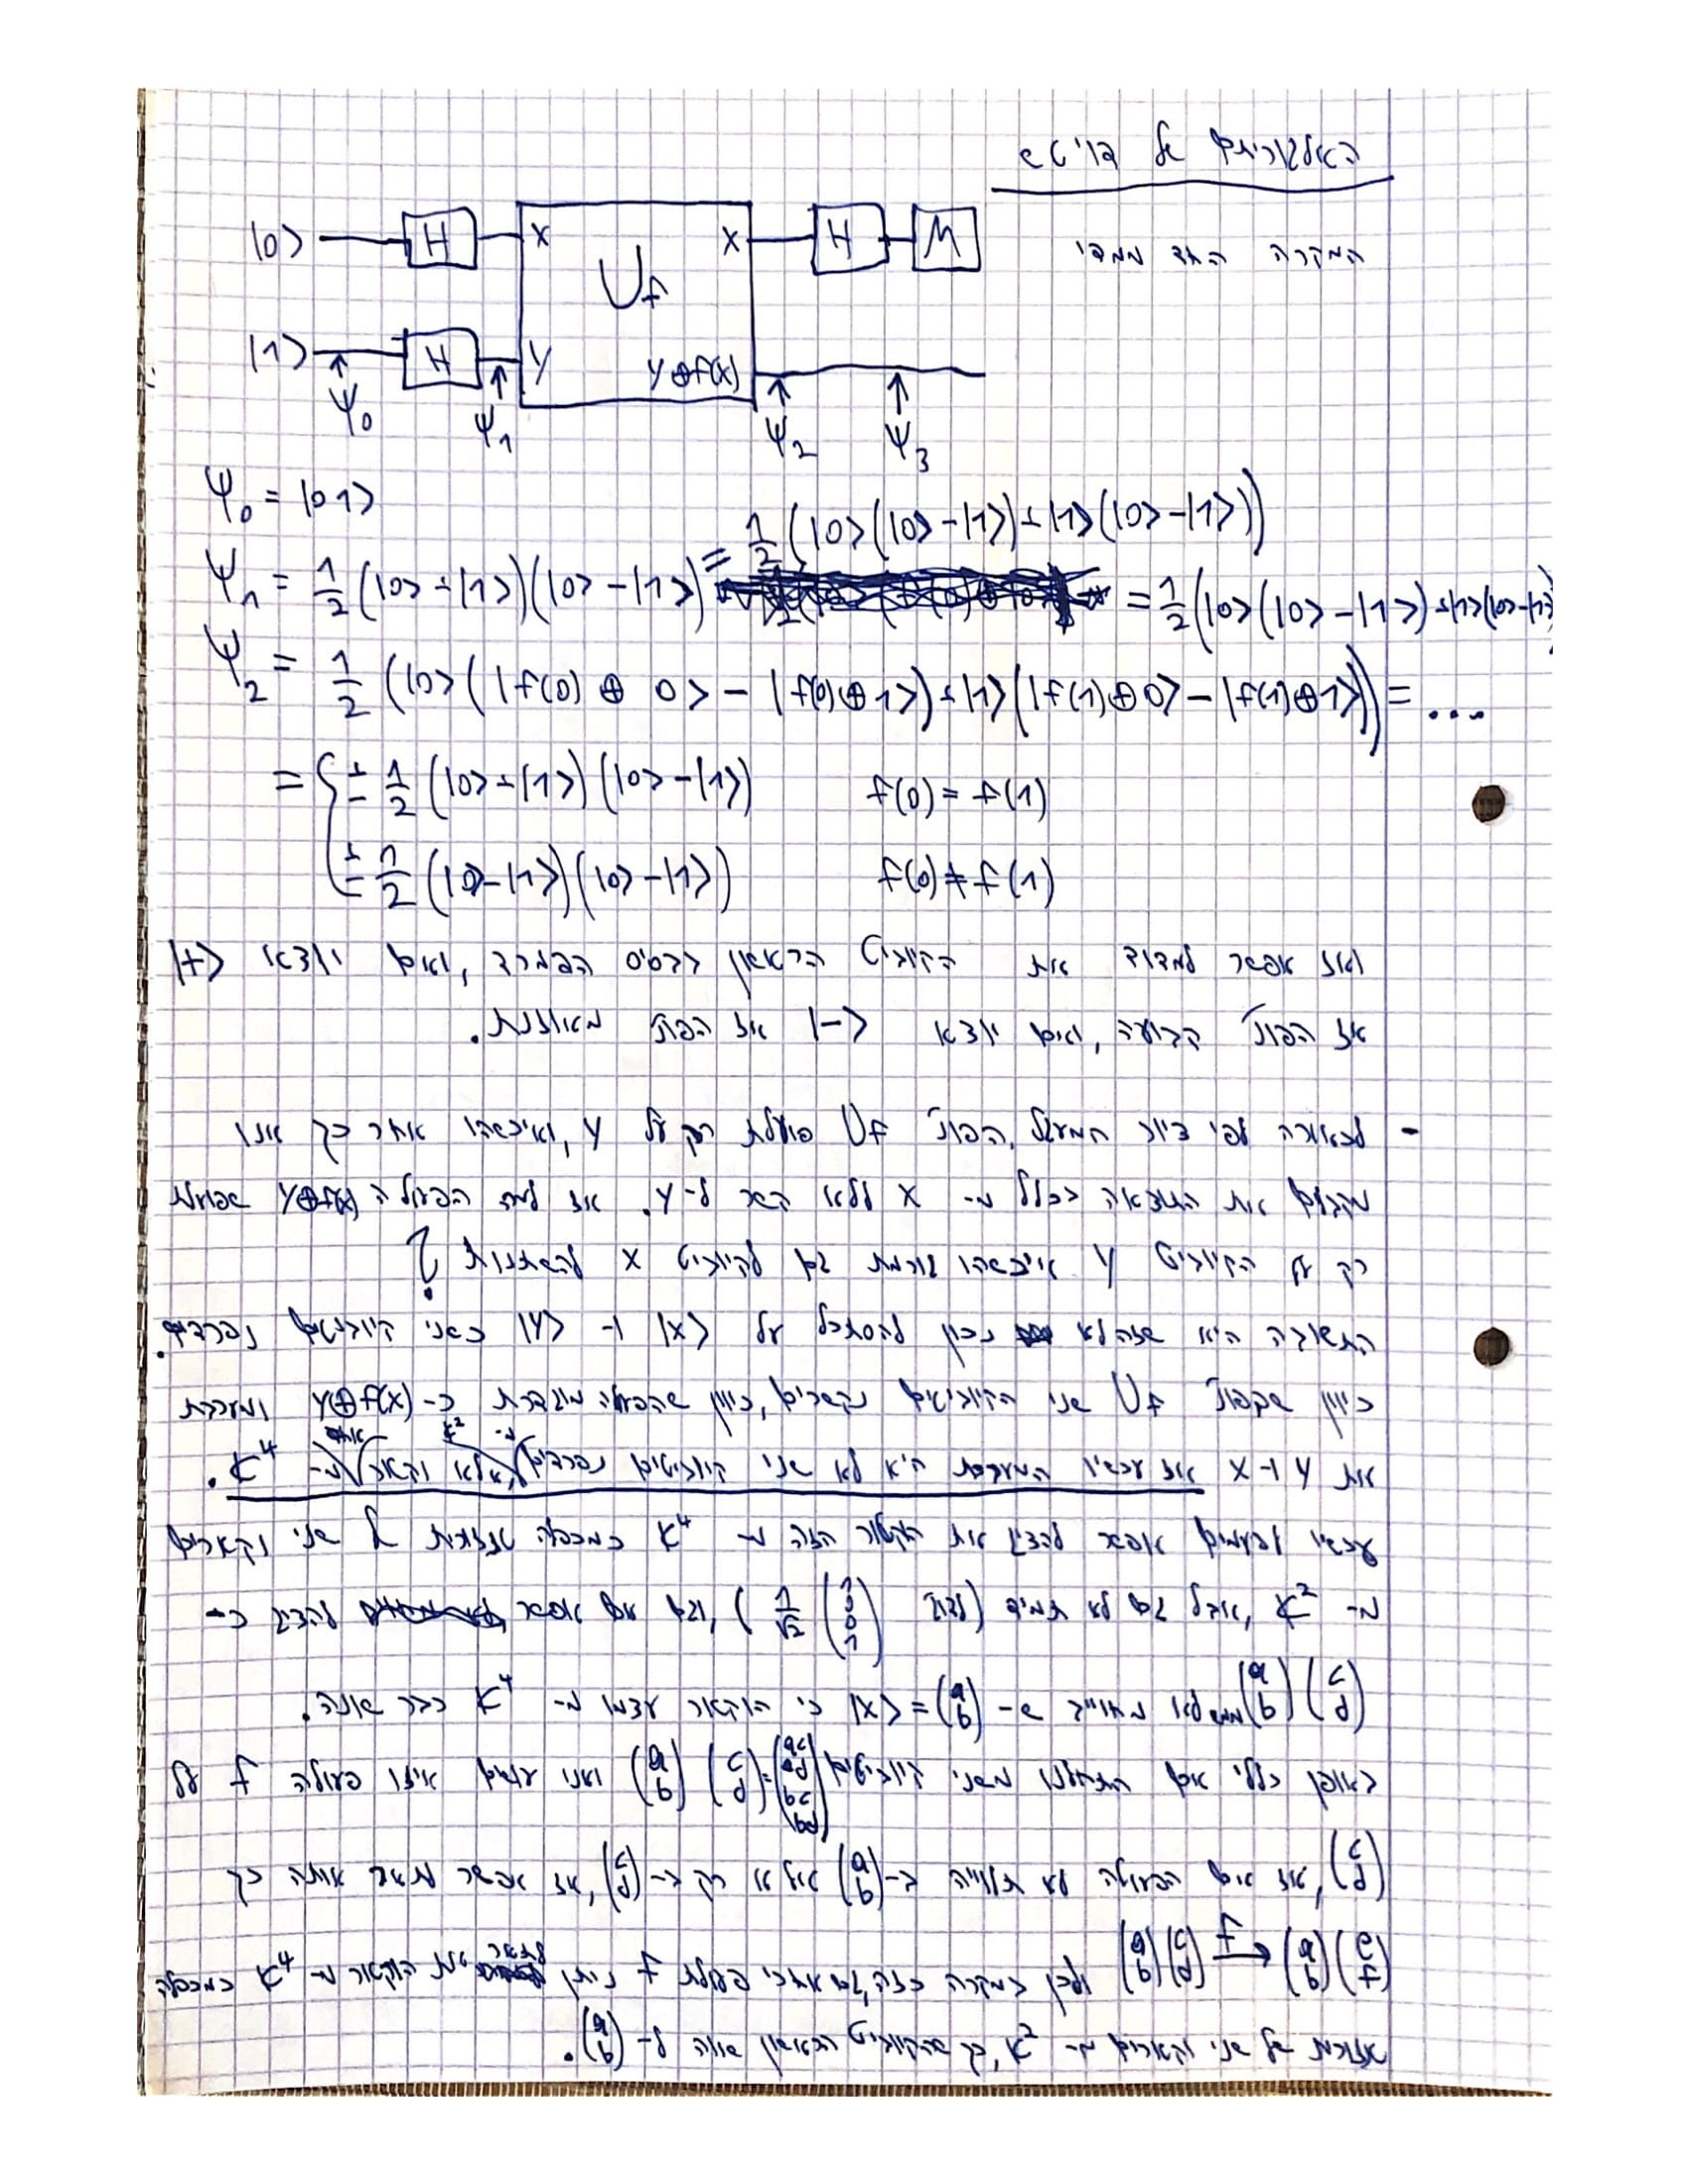 האלגוריתם של דויטש
המקרה החד ממדי
|0> H x x H M
U_f
|1> H y y⊕f(x)
ψ₀ ψ₁ ψ₂ ψ₃
ψ₀ = |01>
ψ₁ = 1/2 (|0>+|1>)(|0>-|1>) = 1/2 (|0>(|0>-|1>)+|1>(|0>-|1>)) = 1/2 (|0>(|0>-|1>)+|1>(|0>-|1>)
ψ₂ = 1/2 (|0>(|f(0)⊕0>-|f(0)⊕1>)+|1>(|f(1)⊕0>-|f(1)⊕1>)) = ...
= { ± 1/2 (|0>+|1>)(|0>-|1>) f(0)=f(1)
± 1/2 (|0>-|1>)(|0>-|1>) f(0)≠f(1)
ואז אפשר למדוד את הקיוביט הראשון בבסיס הדמרד, ואם יוצא |+>
אז הפונ' קבועה, ואם יוצא |-> אז הפונ' מאוזנת.
- לכאורה לפי ציור המעגל, הפונ' U_f פועלת רק על y, ואיכשהו אחר כך אנו
מקבלים את התוצאה בכלל מ- x ללא קשר ל-y. אז למה הפעולה y⊕f(x) שפועלת
רק על הקיוביט y איכשהו גורמת גם לקיוביט x להשתנות?
התשובה היא שזה לא נכון להסתכל על |x> ו- |y> כשני קיוביטים נפרדים.
כיוון שבפונ' U_f שני הקיוביטים נקשרים, כיוון שהפעולה מוגדרת כ- y⊕f(x) ומערבת
את y ו-x אז עכשיו המערכת היא לא שני קיוביטים נפרדים מ- ℂ², אלא וקטור מ- ℂ⁴.
עכשיו לפעמים אפשר להציג את הוקטור הזה מ- ℂ⁴ כמכפלה טנזורית של שני וקטורים
מ- ℂ², אבל גם לא תמיד (לדוג' 1/√2 (1 0 0 1)), וגם אם אפשר להציג כ-
(a b)(c d) ממש לא מחוייב ש- |x> = (a b) כי הוקטור עצמו מ- ℂ⁴ כבר שונה.
באופן כללי אם התחלנו משני קיוביטים (a b)(c d) = (ac ad bc bd) ואנו עושים איזו פעולה f על
(c d), אז אם הפעולה לא תלויה ב-(a b) אלא רק ב-(c d), אז אפשר לתאר אותה כך
(a b)(c d) →f (a b)(e f) ולכן במקרה כזה, גם אחרי פעולת f ניתן לתאר את הוקטור מ- ℂ⁴ כמכפלה
טנזורית של שני וקטורים מ- ℂ², כך שהקיוביט הראשון שווה ל- (a b).